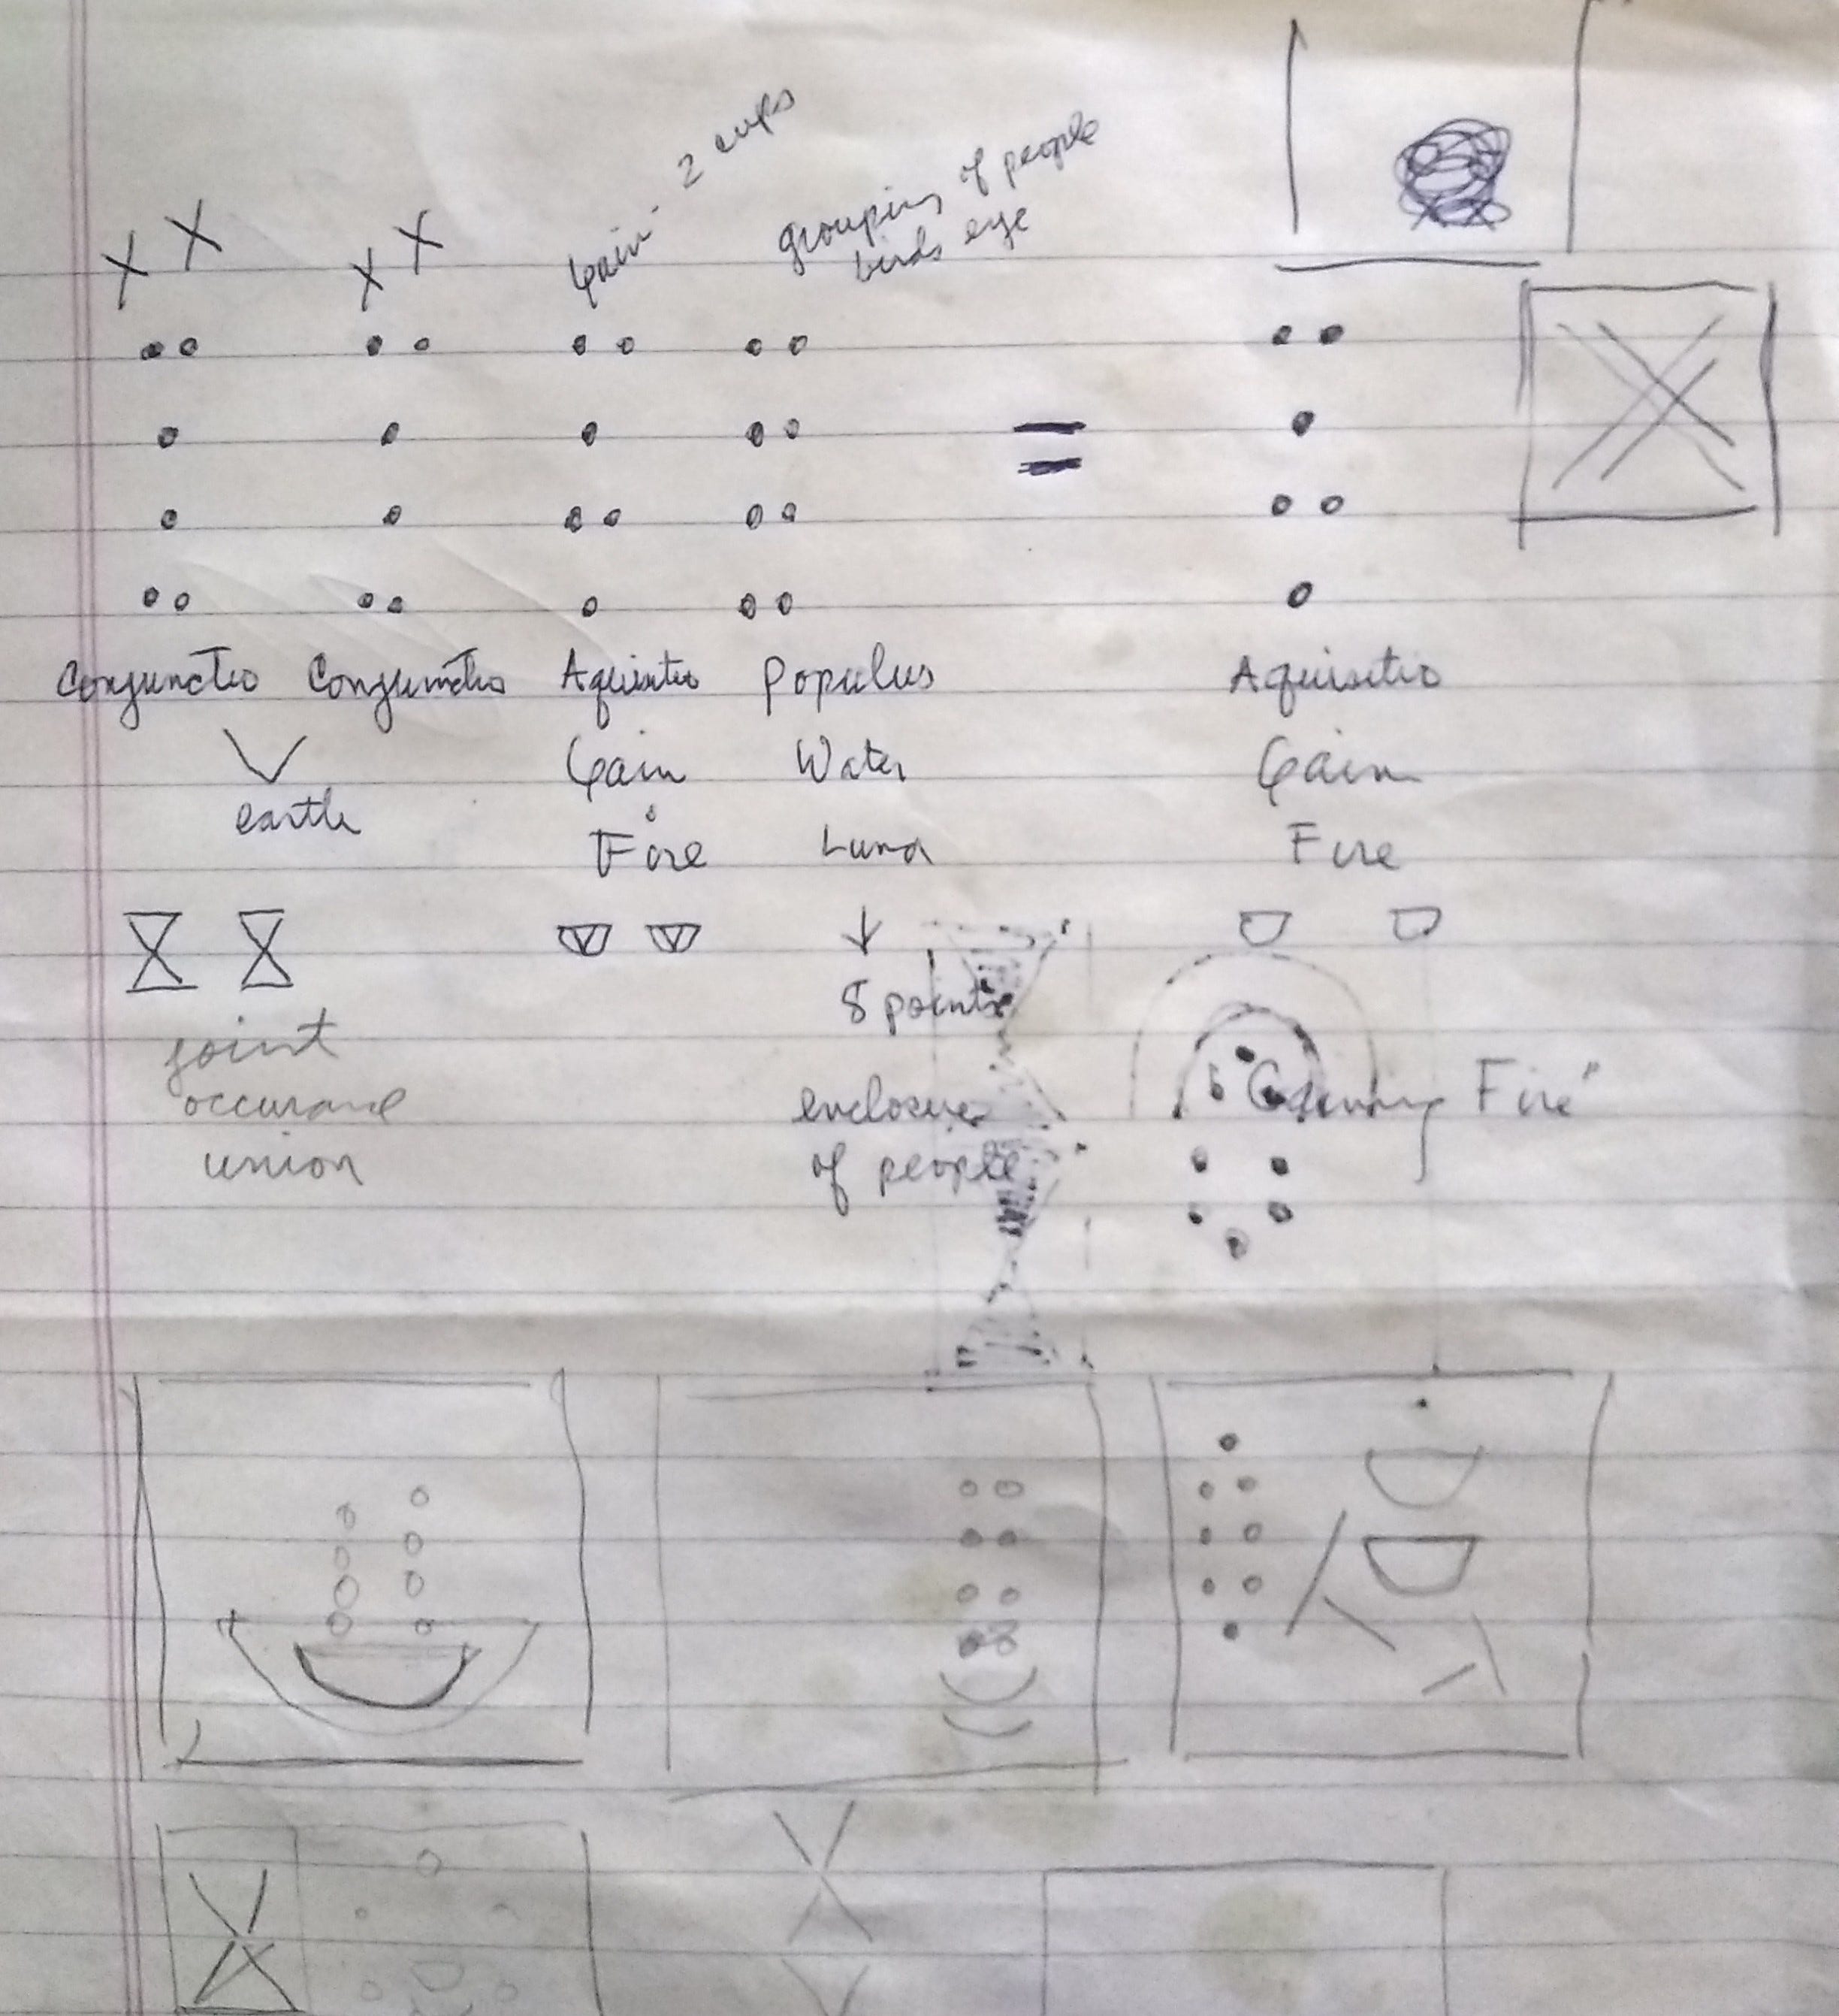 Gain - 2 cups
grouping of people
birds eye
X X X X
=
Conjunctio Conjunctio Aquisitio Populus Aquisitio
Gain Water Gain
earth Fire Luna Fire
8 points
joint
occurance enclosure "Gaining Fire"
union of people